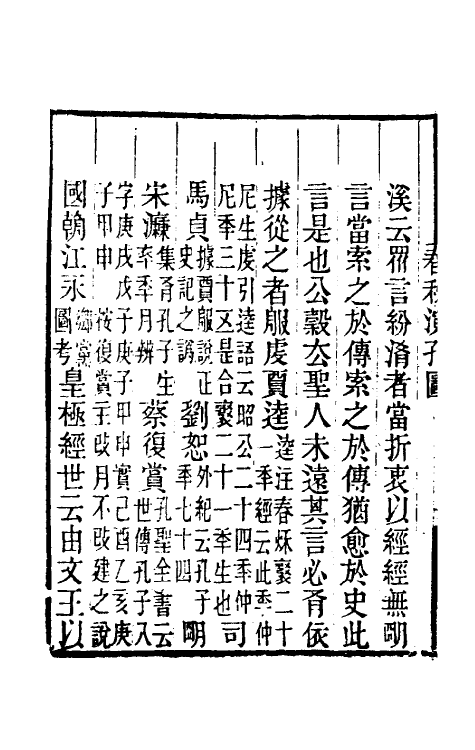 春秋演孔圖
溪云眾言紛淆者當折衷以經經無朙
言當索之於傳索之於傳猶愈於史此
言是也公穀去聖人未遠其言必有依
據從之者服虔賈逵逵注春秋襄二十一季經云此季仲
尼生虔引逵語云昭公二十四季仲尼季三十五是合襄二十一季生也司
馬貞據賈服說正史記之譌劉恕外紀云孔子季七十四朙
宋濂集有孔子生卒季月辨蔡復賞孔聖全書云世傳孔子入
字庚戌戊子庚子甲申實己酉乙亥庚子甲申 按復賞主改月不改建之說
國朝江永鄉黨圖考皇極經世云由文王以